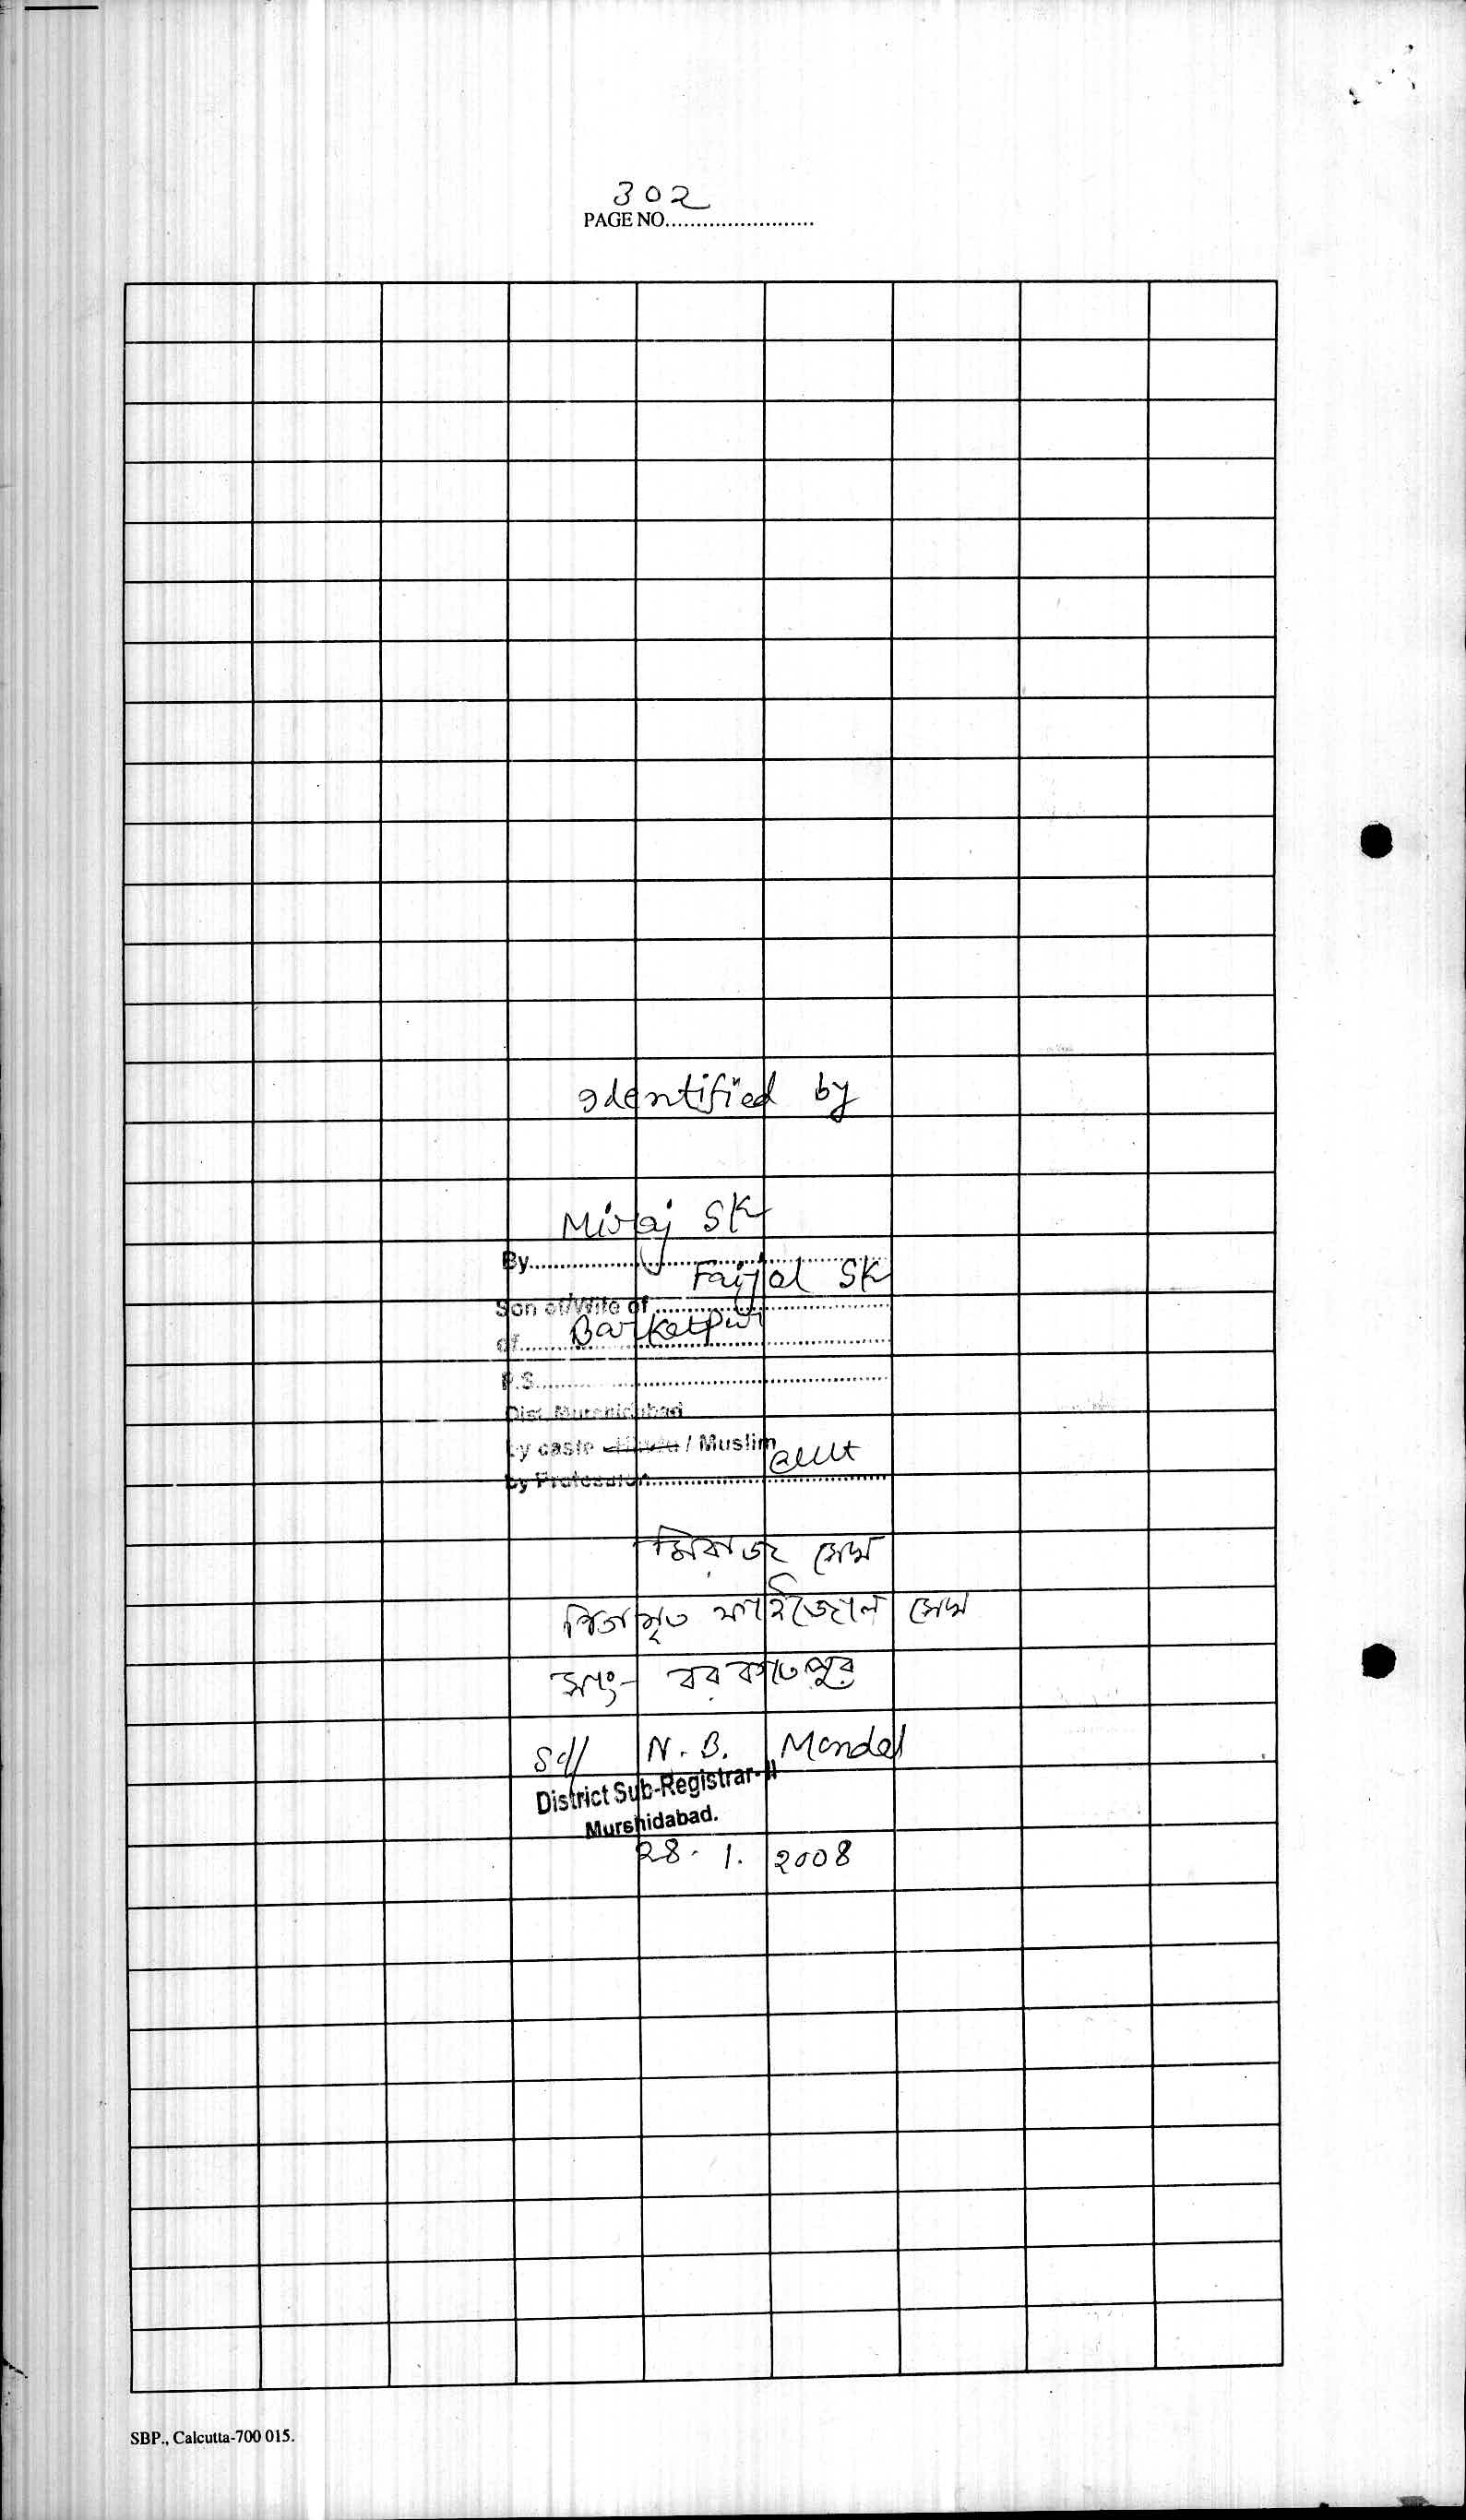 302
PAGE NO..........................
Identified by
Miraj SK
By..........................
Faijal SK
Son of/Wife of..........................
of Barketpur
P.S..........................
Dist. Murshidabad
by caste Hindu / Muslim
by Profession..........................
মিরাজ সেখ
পিতা মৃত ফাইজাল সেখ
সাং- বরকতপুর
Sd/ N. B. Mondal
District Sub-Registrar-II
Murshidabad.
28. 1. 2008
SBP., Calcutta-700 015.